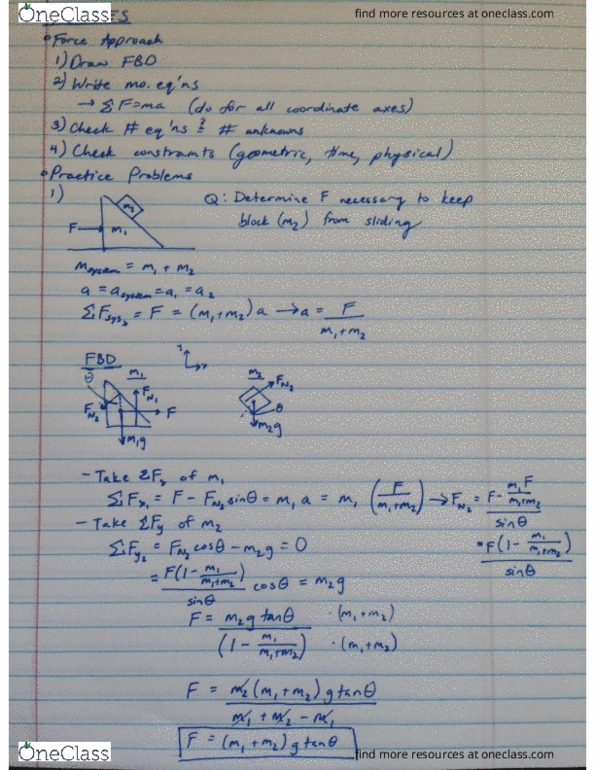 OneClass
find more resources at oneclass.com
• Force Approach
1) Draw FBD
2) Write mo. eq'ns
→ ΣF=ma (do for all coordinate axes)
3) Check # eq'ns ≟ # unknowns
4) Check constraints (geometric, time, physical)
• Practice Problems
1)
Q: Determine F necessary to keep
block (m₂) from sliding
m₂
F→ m₁
m_system = m₁ + m₂
a = a_system = a₁ = a₂
ΣF_sysₓ = F = (m₁+m₂)a → a = F/(m₁+m₂)
FBD
y x
m₁
θ
F_N₁
F_N₂
F
m₁g
m₂
F_N₂
θ
m₂g
- Take ΣFₓ of m₁
ΣFₓ₁ = F - F_N₂ sinθ = m₁a = m₁ (F/(m₁+m₂)) → F_N₂ = (F - m₁F/(m₁+m₂))/sinθ
- Take ΣF_y of m₂
= F(1 - m₁/(m₁+m₂))/sinθ
ΣF_y₂ = F_N₂ cosθ - m₂g = 0
= F(1 - m₁/(m₁+m₂))/sinθ cosθ = m₂g
F = m₂g tanθ/(1 - m₁/(m₁+m₂)) ·(m₁+m₂)/·(m₁+m₂)
F = m₂(m₁+m₂)g tanθ/(m₁+m₂-m₁)
F = (m₁+m₂)g tanθ
OneClass
find more resources at oneclass.com